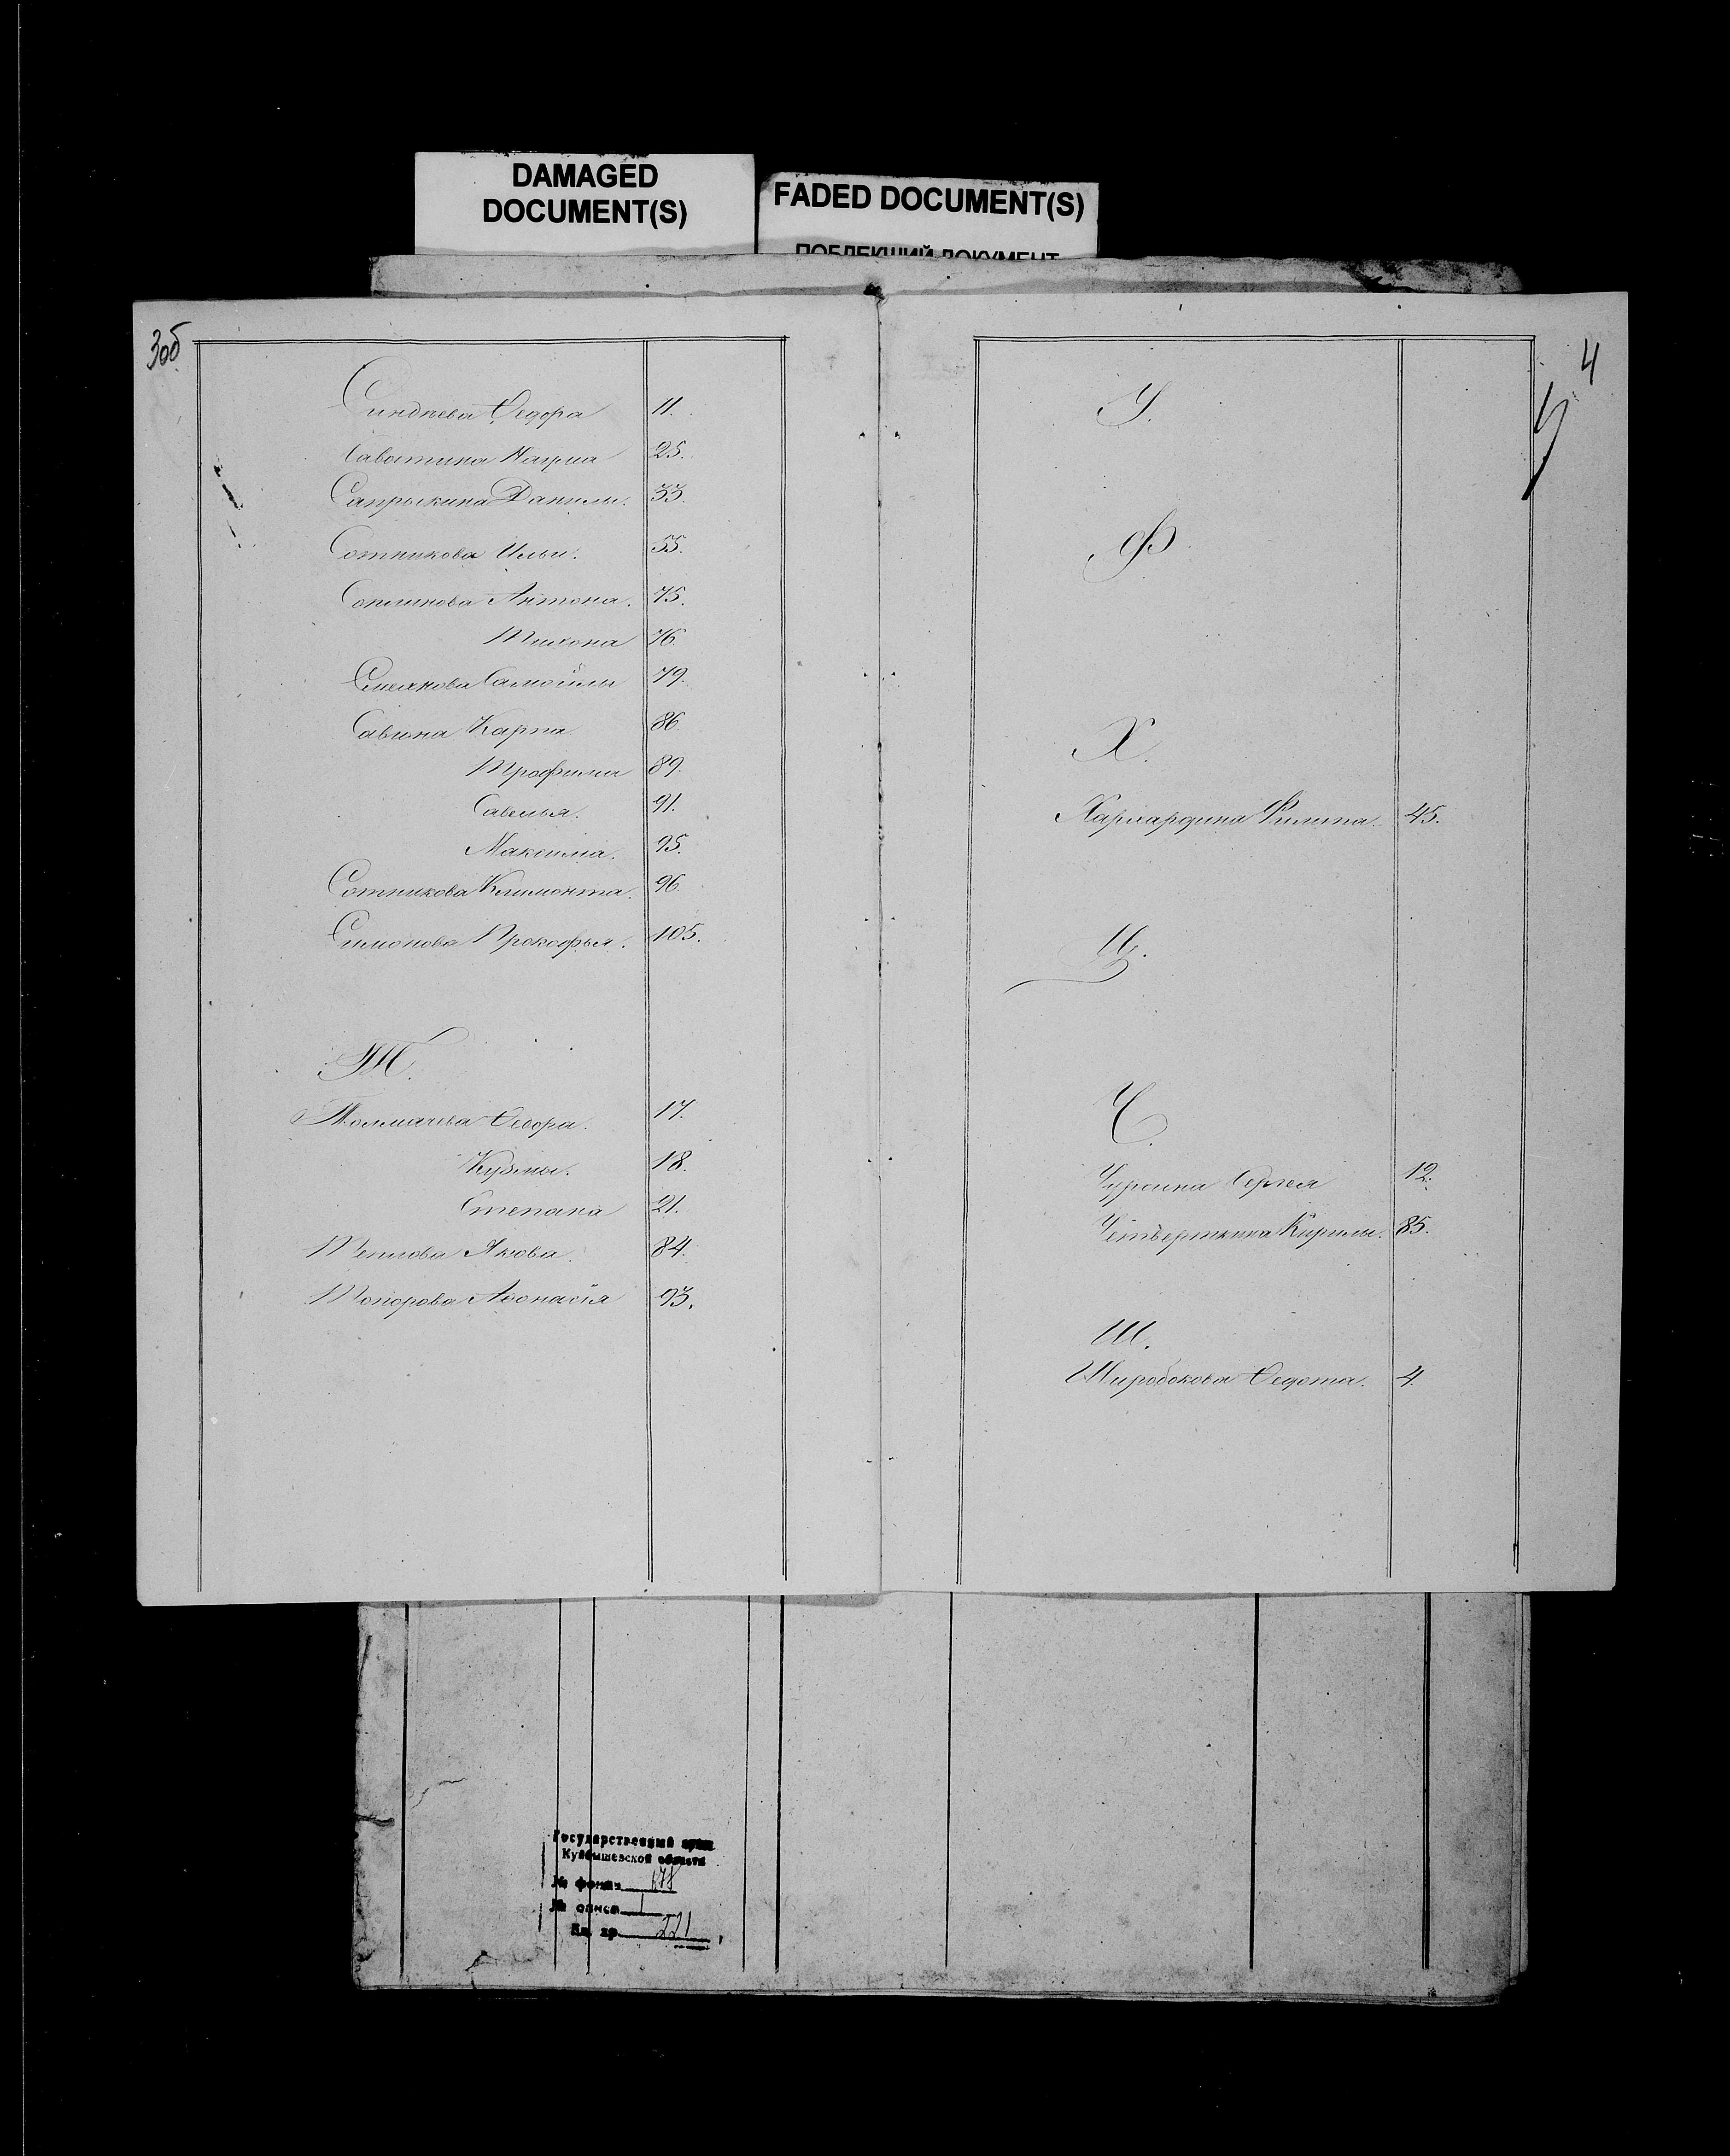 DAMAGED
DOCUMENT(S)
FADED DOCUMENT(S)
ПОБЛЕКШИЙ ДОКУМЕНТ
3об
Синдяева Ѳедора 11.
Савостина 25.
Сапрыкина Данилы. 33.
Сотникова Ильи. 55.
Антона. 75.
Тихона 76.
Самойлы 79.
Савина Карпа 86.
Трофима 89.
Савелья. 91.
Максима. 95.
Сотникова Климонта. 96.
Симонова Прокофья. 105.
Т.
Толмачева Ѳедора. 17.
Кузьмы. 18.
Степана 21.
Теплова Якова. 84.
Топорова Аѳонасія 93.
4
У.
Ф.
Х.
Хархардина Филипа. 45.
Ц.
Ч.
Чурсина Сергея 12.
Четверткина Кирилы. 85.
Ш.
Широбокова Ѳедота. 4.
Государственный архив
Куйбышевской области
№ фонда
№ описи 1
Ед. хр. 221